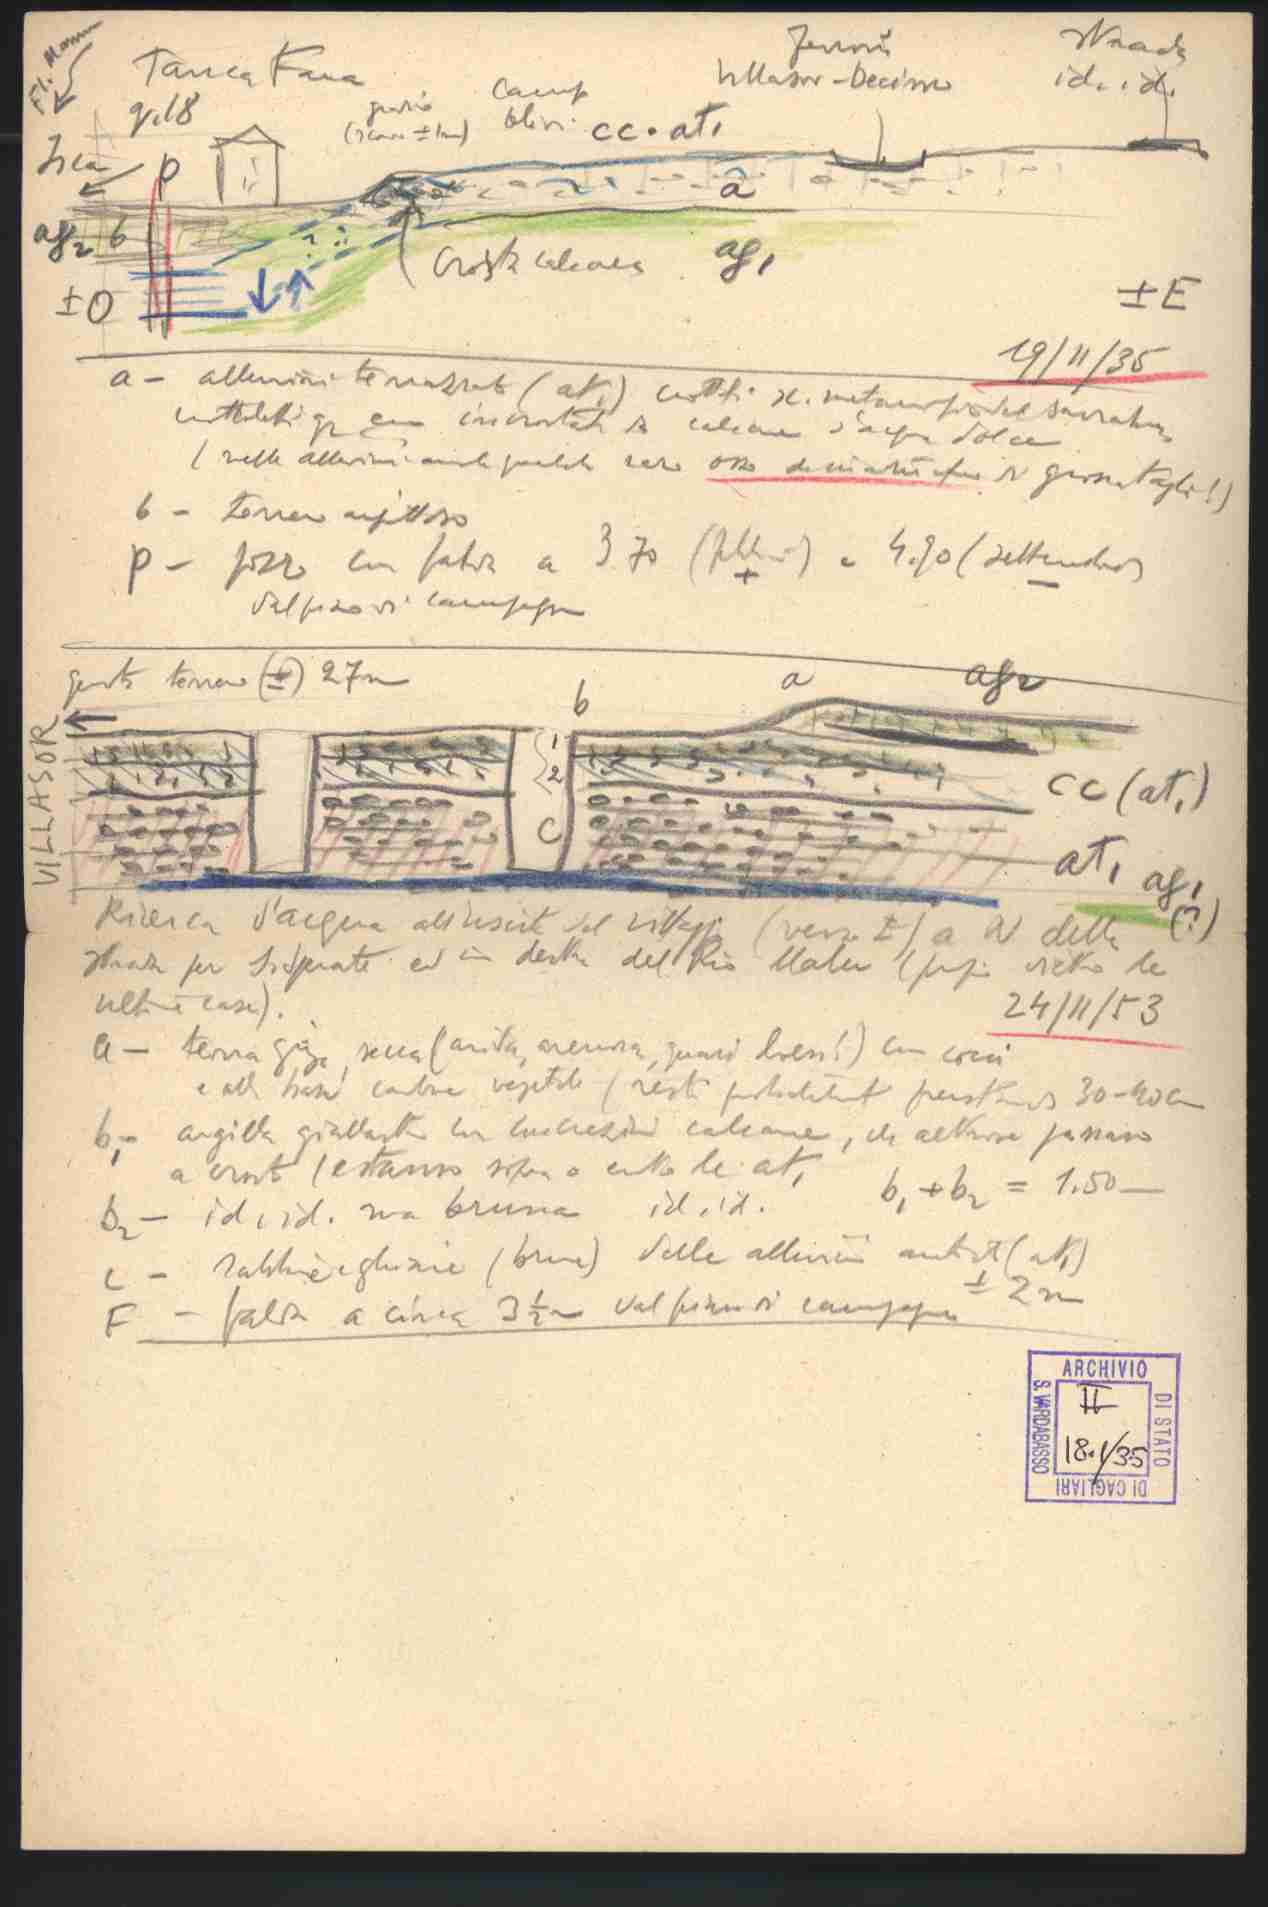 Fl. Mannu
Tanca Fara
q. 18
(scarp ± 1m)
Camp
olivi
cc • at₁
Ferrovia
Villasor - Decimo
Strada
id. id.
Isca
p
ag₂ b
a
Crosta calcarea
ag₁
± O
± E
19/11/35
a - alluvioni terrazzate (at₁)
incrostati da calcare d'acqua dolce
(nelle alluvioni di grossa taglia!)
b - terreno argilloso
p - pozzo con falda a 3.70 (febbraio) e 4.90 (settembre)
+ -
dal piano di campagna
terreno (±) 27 m
b a ag₂
VILLASOR
1
2
c
cc (at₁)
at₁ ag₁
(?)
Ricerca d'acqua all'uscita del villaggio (verso E) a W della
strada per S. Sperate ed in destra del Rio Malu (dietro le
ultime case).
24/11/53
a - terra grigia, secca (arida, arenosa, quasi loess!) con cocci
e alla base carbone vegetale (resti 30-40 cm
b₁ - argilla giallastra con concrezioni calcaree, che altrove passano
a crosta (estranea sopra o entro le at₁
b₁ + b₂ = 1.50
b₂ - id. id. ma bruna id. id.
c - sabbie e ghiaie (brune) delle alluvioni antiche (at₁)
± 2 m
F - falda a circa 3 ½ m dal piano di campagna
ARCHIVIO
DI STATO
DI CAGLIARI
S. VARDABASSO
II
18.1/35